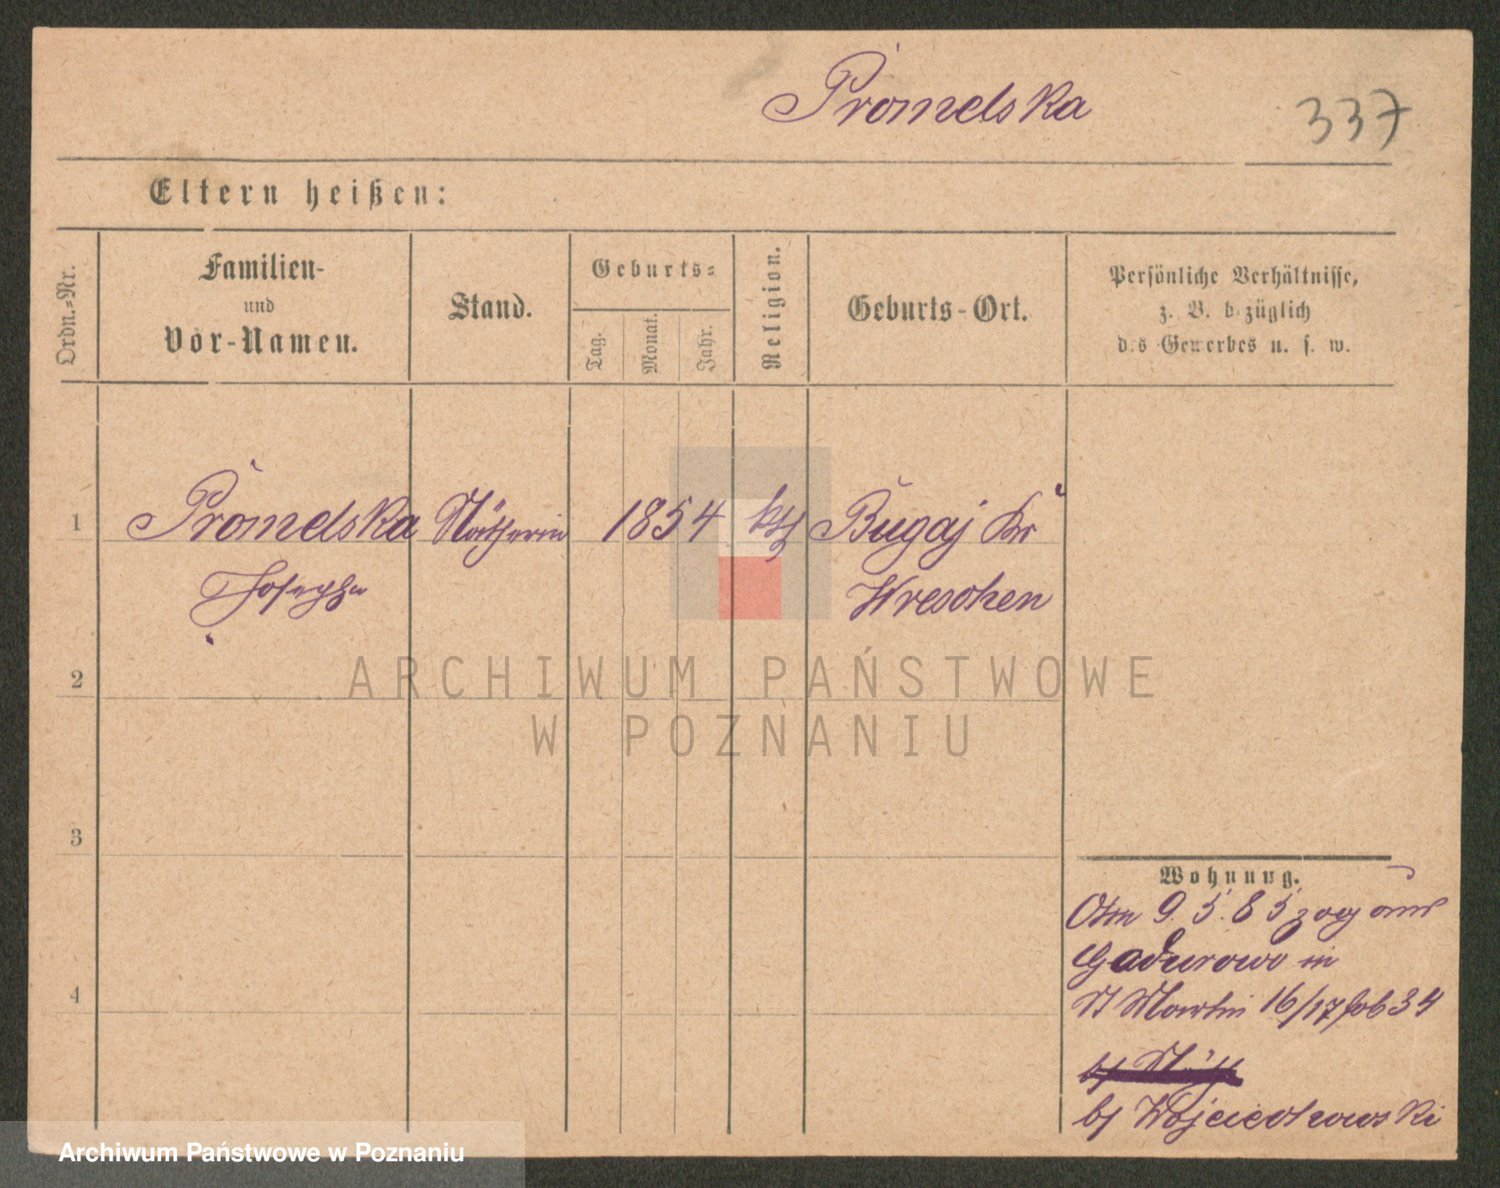 Promelska
337
Eltern heißen:
Ordn.-Nr.
Familien-
und
Vor-Namen.
Stand.
Geburts-
Tag.
Monat.
Jahr.
Religion.
Geburts-Ort.
Persönliche Verhältnisse,
z. B. bezüglich
des Gewerbes u. s. w.
1 Promelska Nätherin 1854 kth Bugaj Kr
Josepha Wreschen
2
3
4
Wohnung.
9. 5. 85 zog aus
Gadurowo in
St Martin 16/17 34
b/ Wojciechowski
ARCHIWUM PAŃSTWOWE
W POZNANIU
Archiwum Państwowe w Poznaniu